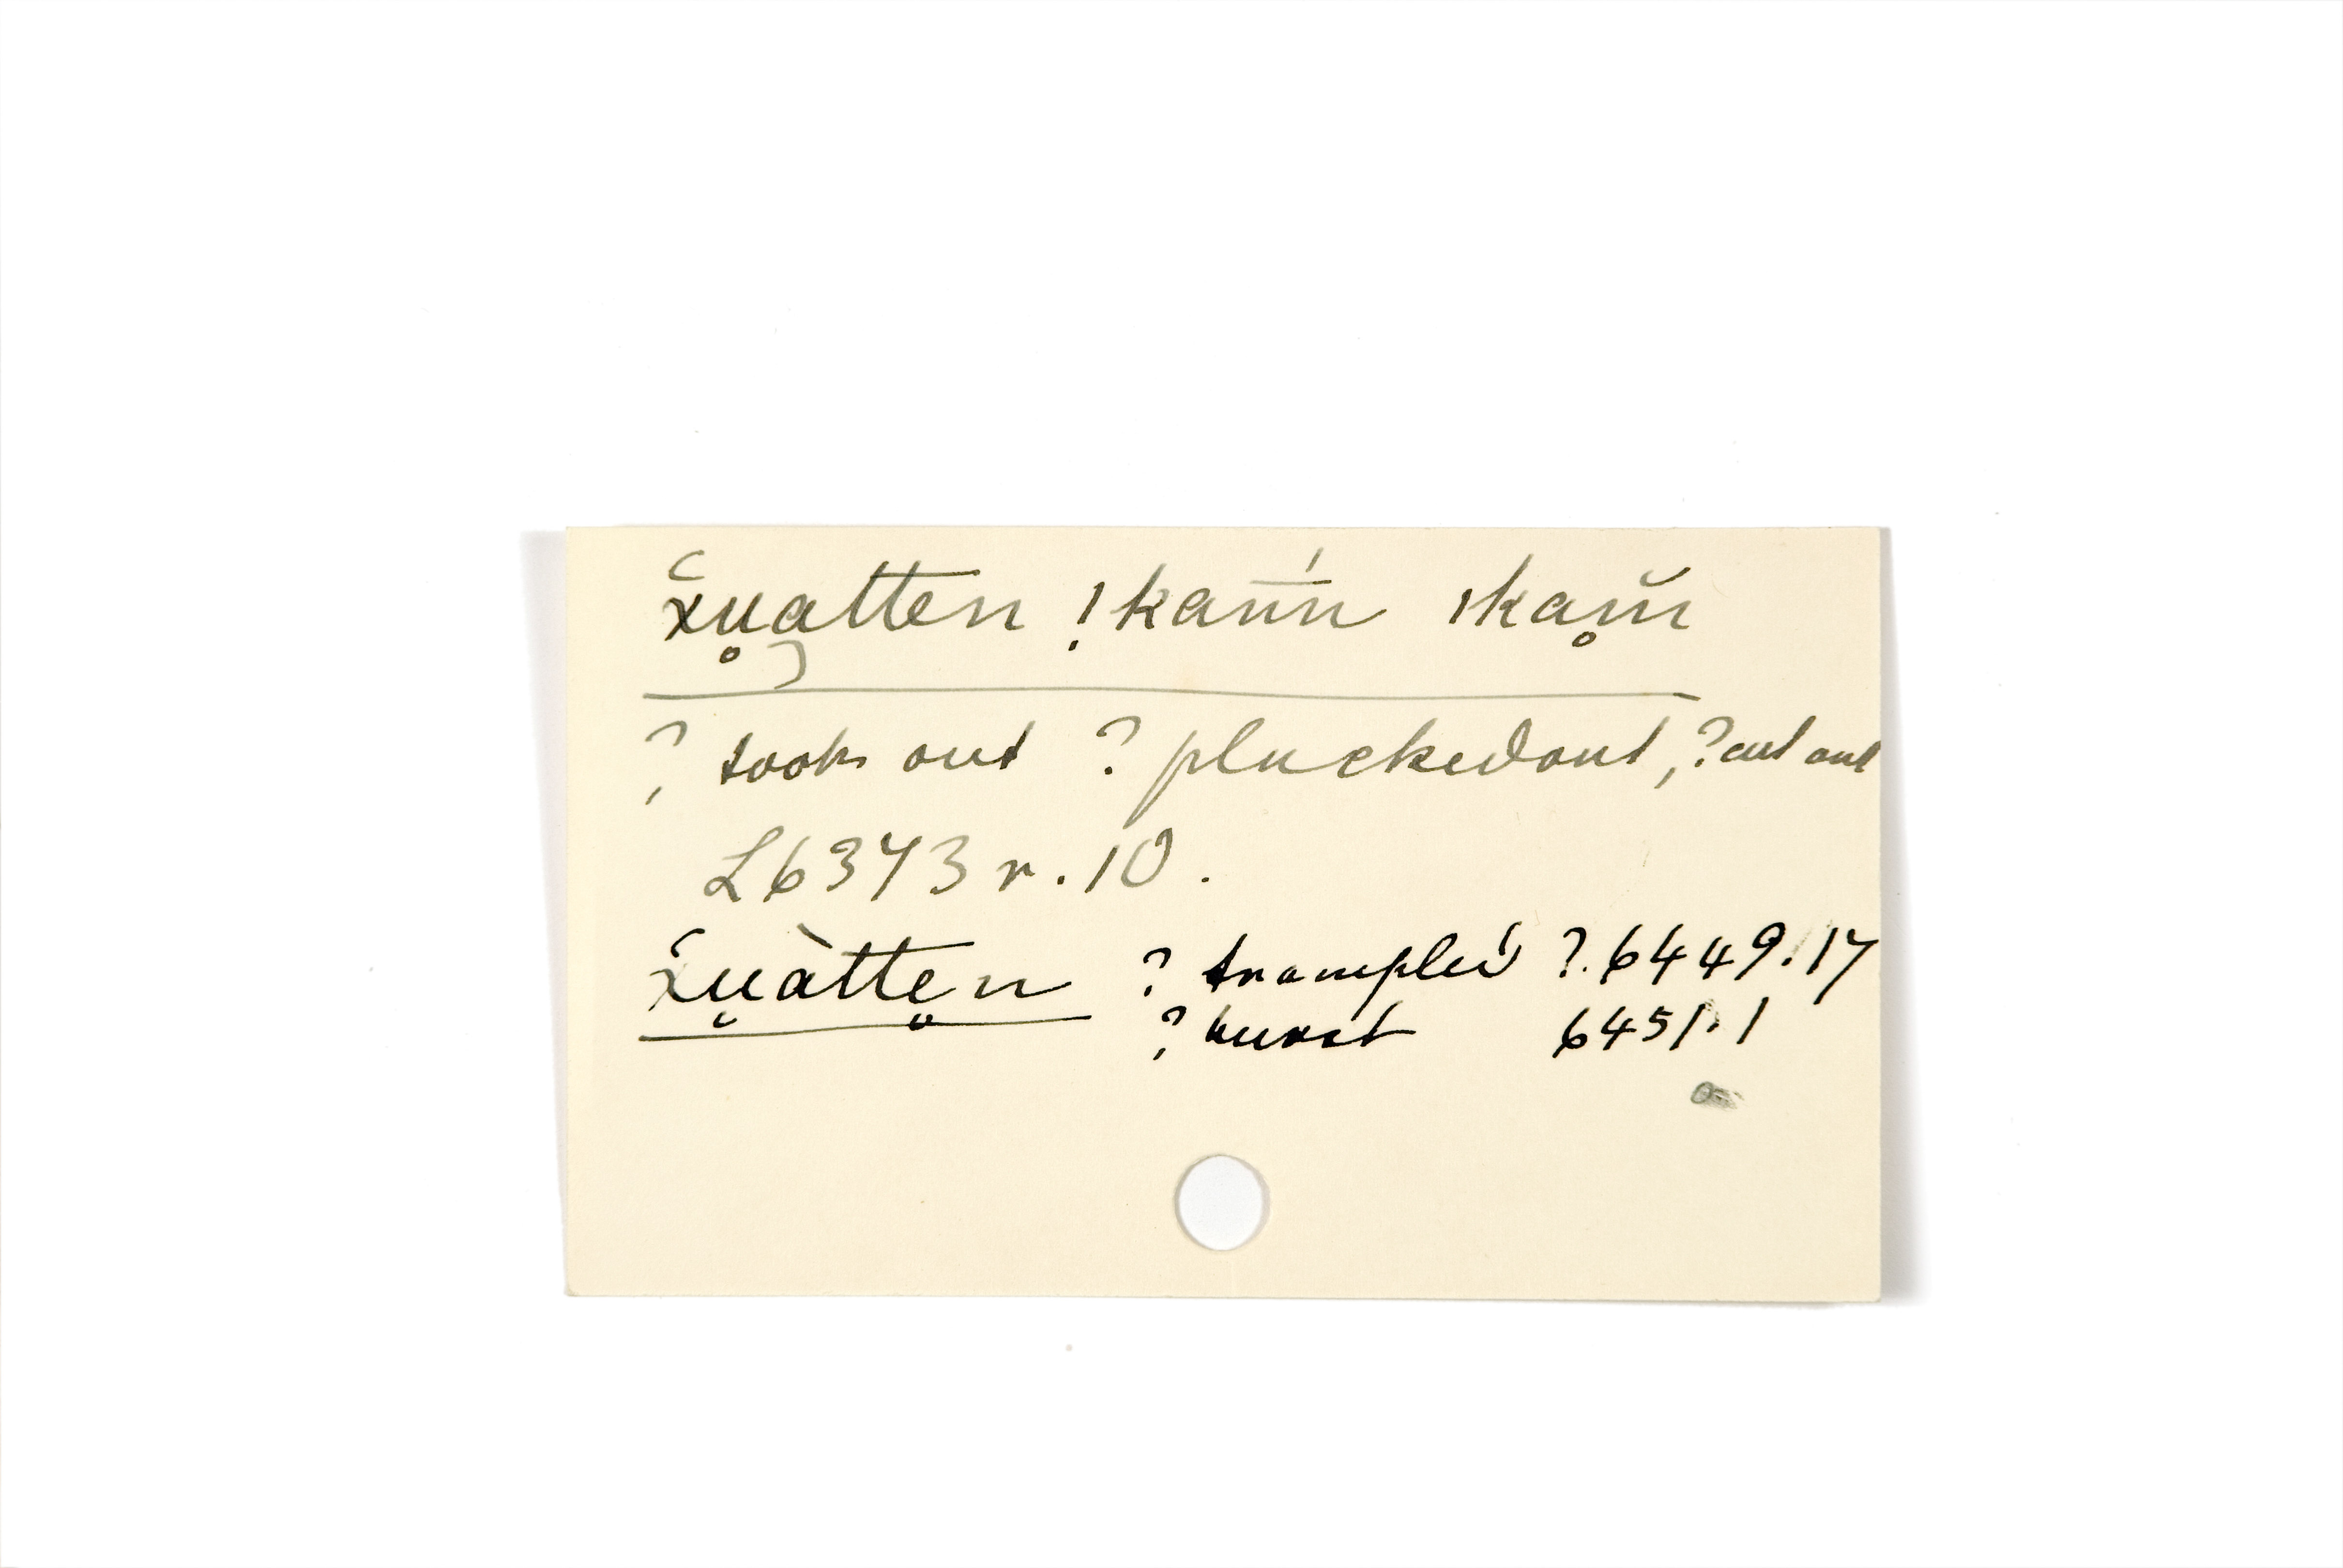 x̆u̥atten !kan̄́n ıkḁn̆
? took out ? plucked out, ? cut out
L6373 r. 10.
x̆u̯àtte̥n ? trampled ?. 6449. 17
? burst 6451. 1